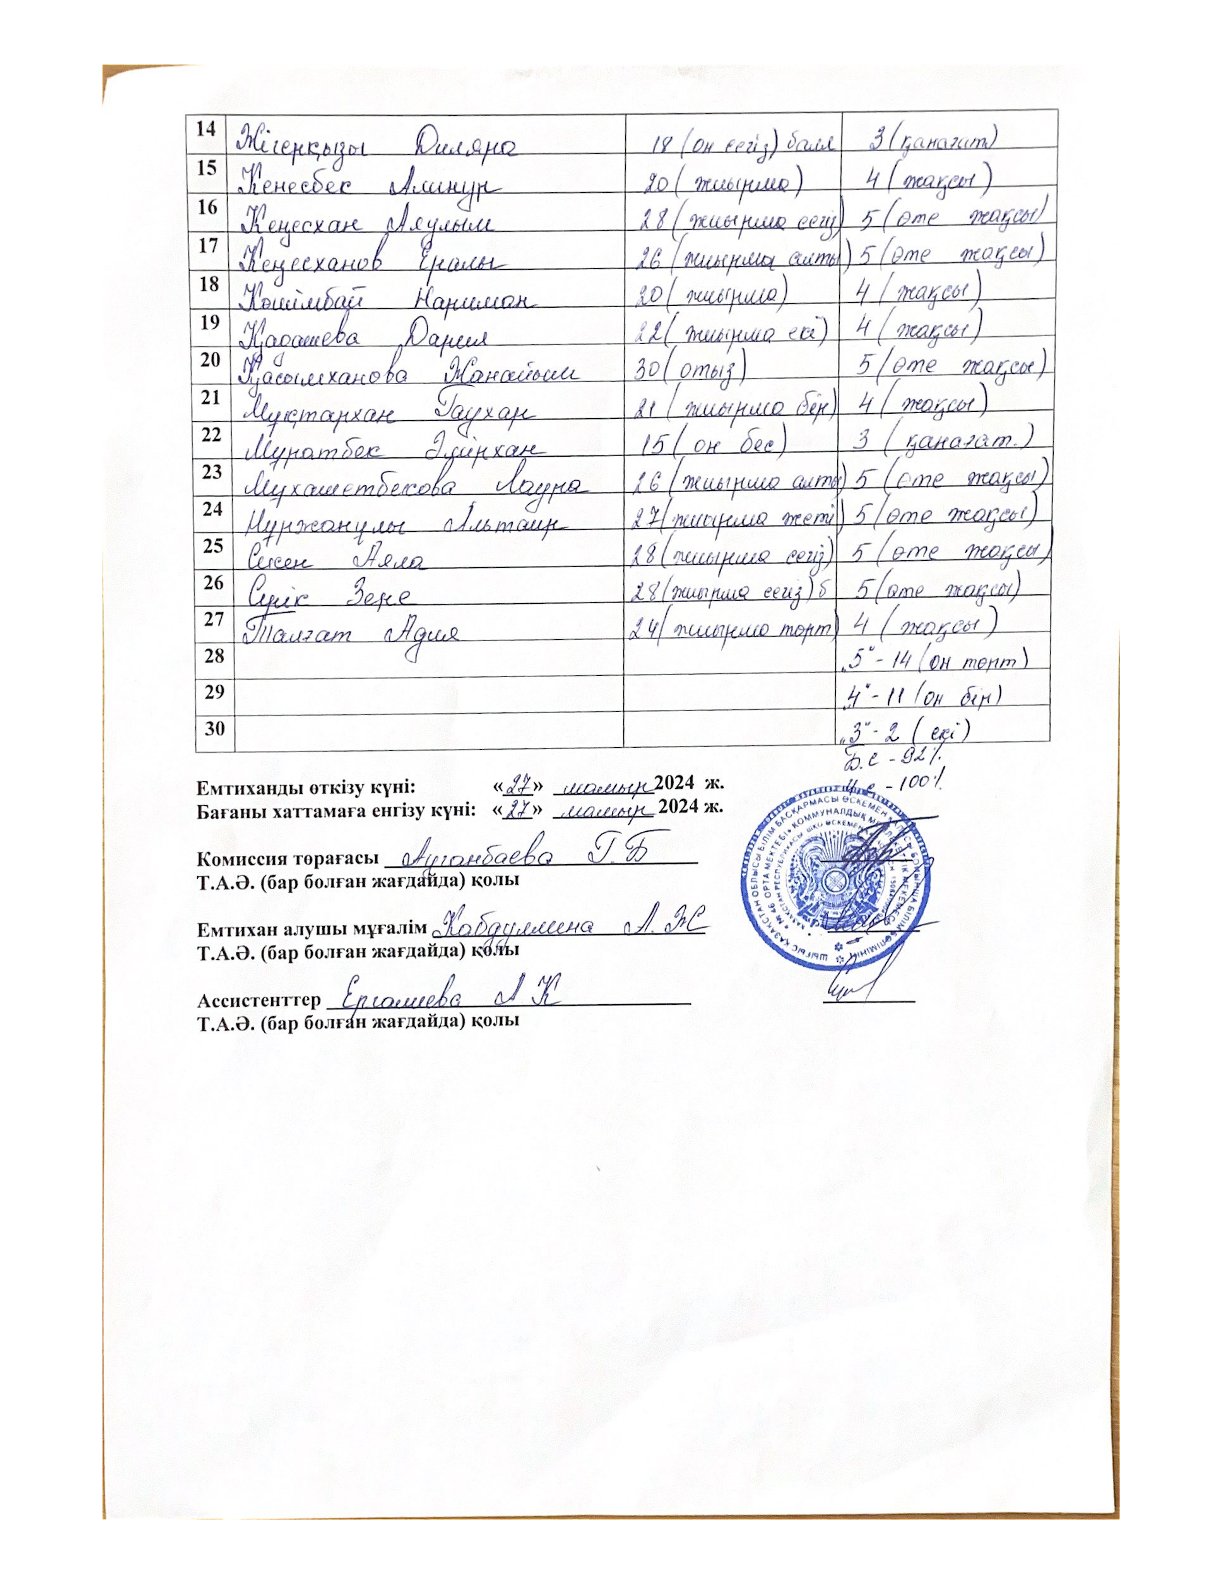 14 Жігерқызы Диляра 18 (он сегіз) балл 3 (қанағат)
15 Кенесбек Алинұр 20 (жиырма) 4 (жақсы)
16 Кеңесхан Аяулым 28 (жиырма сегіз) 5 (өте жақсы)
17 Кеңесханов Ералы 26 (жиырма алты) 5 (өте жақсы)
18 Көшімбай Нариман 20 (жиырма) 4 (жақсы)
19 Қадашева Дария 22 (жиырма екі) 4 (жақсы)
20 Қасымханова Жанайым 30 (отыз) 5 (өте жақсы)
21 Мұқтархан Гаухар 21 (жиырма бір) 4 (жақсы)
22 Мұратбек Әмірхан 15 (он бес) 3 (қанағат.)
23 Мухаметбекова Лаура 26 (жиырма алты) 5 (өте жақсы)
24 Нұржанұлы Альтаир 27 (жиырма жеті) 5 (өте жақсы)
25 Секен Аяла 28 (жиырма сегіз) 5 (өте жақсы)
26 Серік Зере 28 (жиырма сегіз) б 5 (өте жақсы)
27 Талғат Адия 24 (жиырма төрт) 4 (жақсы)
28 „5“ - 14 (он төрт)
29 „4“ - 11 (он бір)
30 „3“ - 2 (екі)
Б.с - 92%
Ү.с - 100%
Емтиханды өткізу күні: «27» мамыр 2024 ж.
Бағаны хаттамаға енгізу күні: «27» мамыр 2024 ж.
Комиссия төрағасы Ауганбаева Г.Б
Т.А.Ә. (бар болған жағдайда) қолы
Емтихан алушы мұғалім Кабдуллина А.Ж
Т.А.Ә. (бар болған жағдайда) қолы
Ассистенттер Ергалиева А К
Т.А.Ә. (бар болған жағдайда) қолы